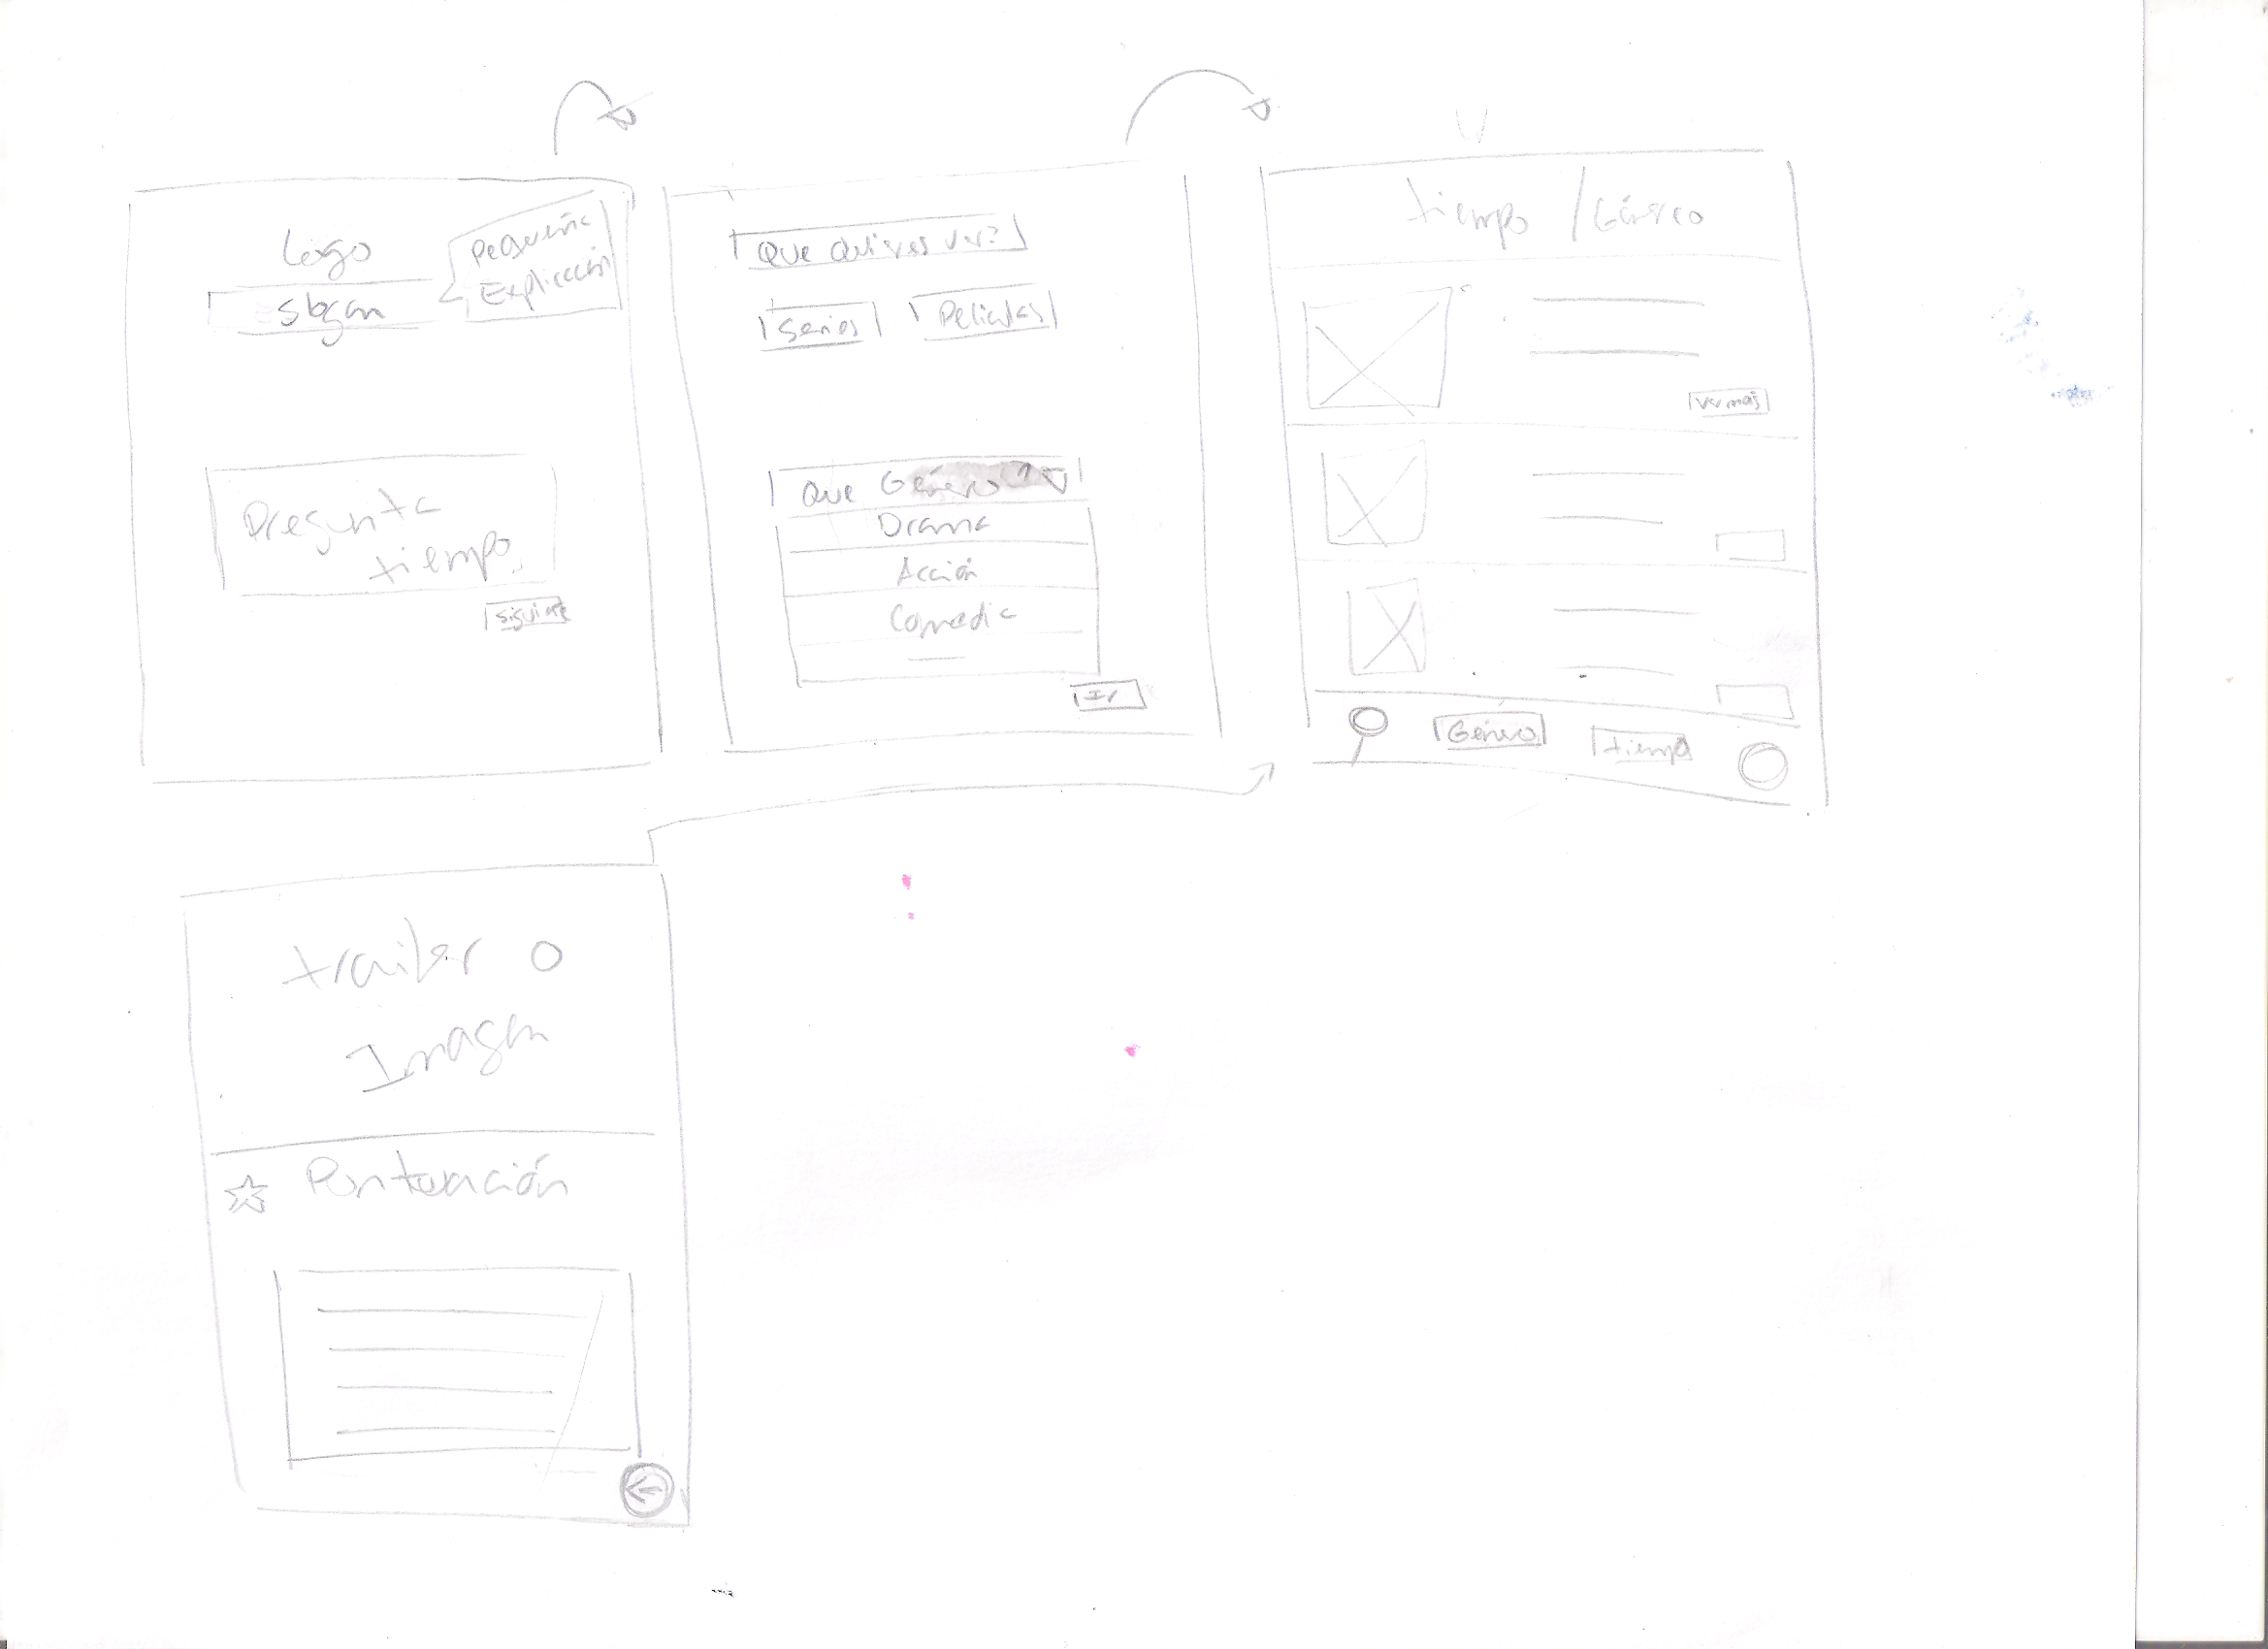 Logo
slogan
Pequeña
Explicación
Pregunta
tiempo
siguiente
Que Quieres ver?
Series
Peliculas
Que Género?
Drama
Acción
Comedia
Ir
tiempo / Género
ver mas
Género
tiempo
trailer o
Imagen
Puntuación